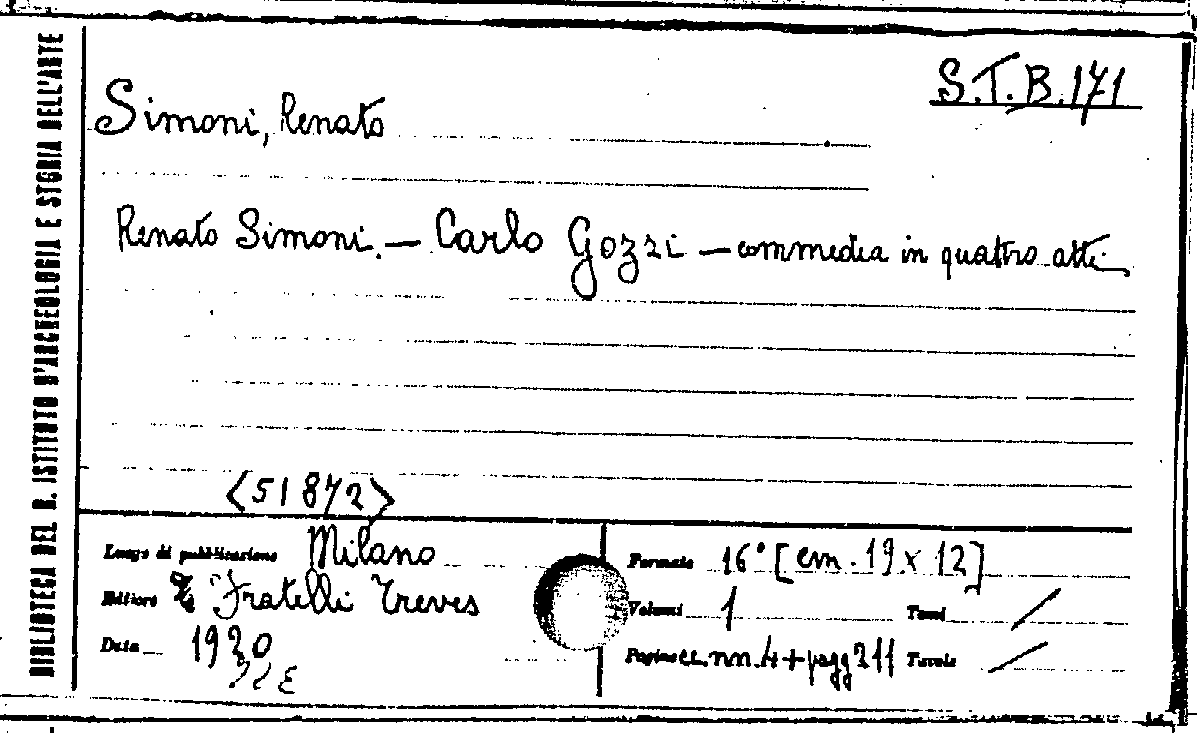 BIBLIOTECA DEL R. ISTITUTO D'ARCHEOLOGIA E STORIA DELL'ARTE
S.T.B.171
Simoni, Renato
Renato Simoni. — Carlo Gozzi — commedia in quattro atti
<51872>
Luogo di pubblicazione Milano
Editore Fratelli Treves
Data 1920
Formato 16° [cm. 19 x 12]
Volumi 1 Tomi /
Pagine cc. nn. 4 + pagg 211 Tavole /